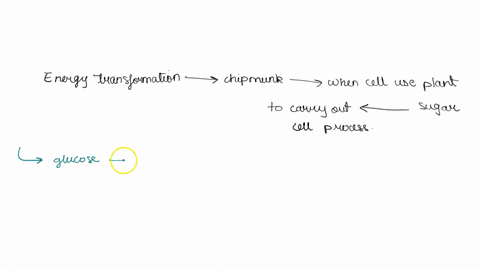 Energy transformation → chipmunk → when cell use plant
to carry out ← sugar
cell process.
↳ glucose —